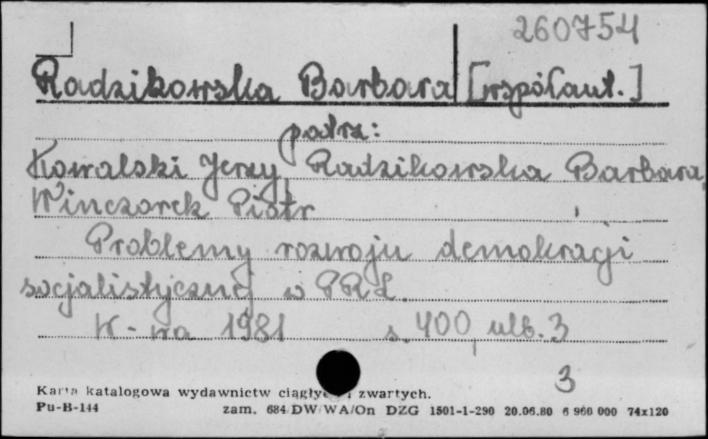 260754
Radzikowska Barbara [współaut.]
patrz:
Kowalski Jerzy, Radzikowska Barbara,
Winczorek Piotr
Problemy rozwoju demokracji
socjalistycznej w PRL.
W-wa 1981 s. 400, nlb. 3
3
Karta katalogowa wydawnictw ciągłych i zwartych.
Pu-B-144 zam. 684/DW/WA/On DZG 1501-1-290 20.06.80 6 960 000 74x120